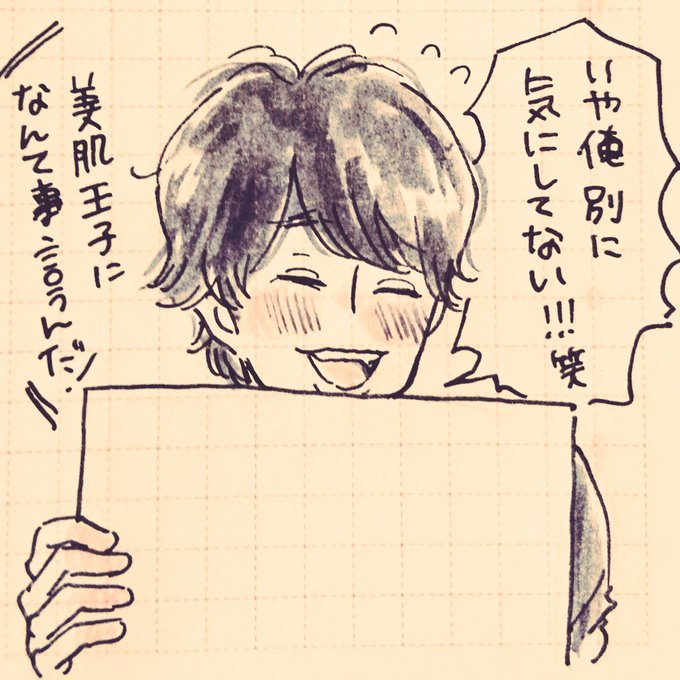 いや俺別に
気にしてない!!!笑
美肌王子に
なんて事言うんだ!